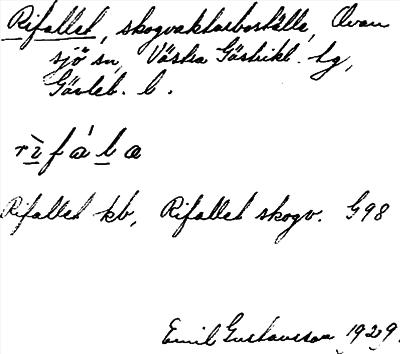 Rifallet, skogvaktarboställe, Ovan
sjö sn, Västra Gästrikl. tg,
Gävleb. l.
rìfála
Rifallet kb, Rifallet skogv. G98
Emil Gustavsson 1929.